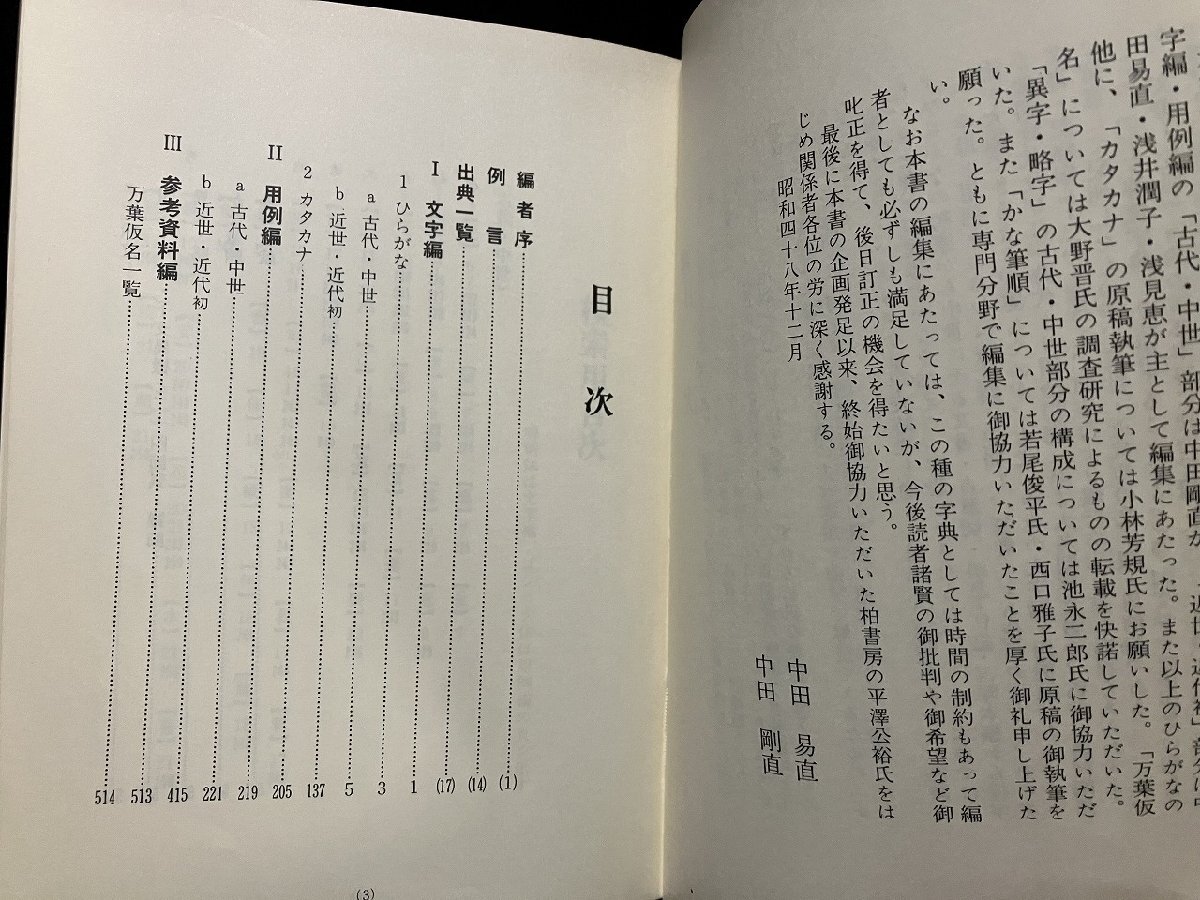 字編・用例編の「古代・中世」部分は中田剛直が
田易直・浅井潤子・浅見恵が主として編集にあたった。また以上のひらがなの
他に、「カタカナ」の原稿執筆については小林芳規氏にお願いした。「万葉仮
名」については大野晋氏の調査研究によるものの転載を快諾していただいた。
「異字・略字」の古代・中世部分の構成については池永二郎氏に御協力いただ
いた。また「かな筆順」については若尾俊平氏・西口雅子氏に原稿の御執筆を
願った。ともに専門分野で編集に御協力いただいたことを厚く御礼申し上げた
い。
なお本書の編集にあたっては、この種の字典としては時間の制約もあって編
者としても必ずしも満足していないが、今後読者諸賢の御批判や御希望など御
叱正を得て、後日訂正の機会を得たいと思う。
最後に本書の企画発足以来、終始御協力いただいた柏書房の平澤公裕氏をは
じめ関係者各位の労に深く感謝する。
昭和四十八年十二月
中田 易直
中田 剛直
目次
編者序 (1)
例言 (14)
出典一覧 (17)
Ⅰ 文字編 1
1 ひらがな 3
a 古代・中世 5
b 近世・近代初 137
2 カタカナ 205
Ⅱ 用例編 219
a 古代・中世 221
b 近世・近代初 415
Ⅲ 参考資料編 513
万葉仮名一覧 514
(3)